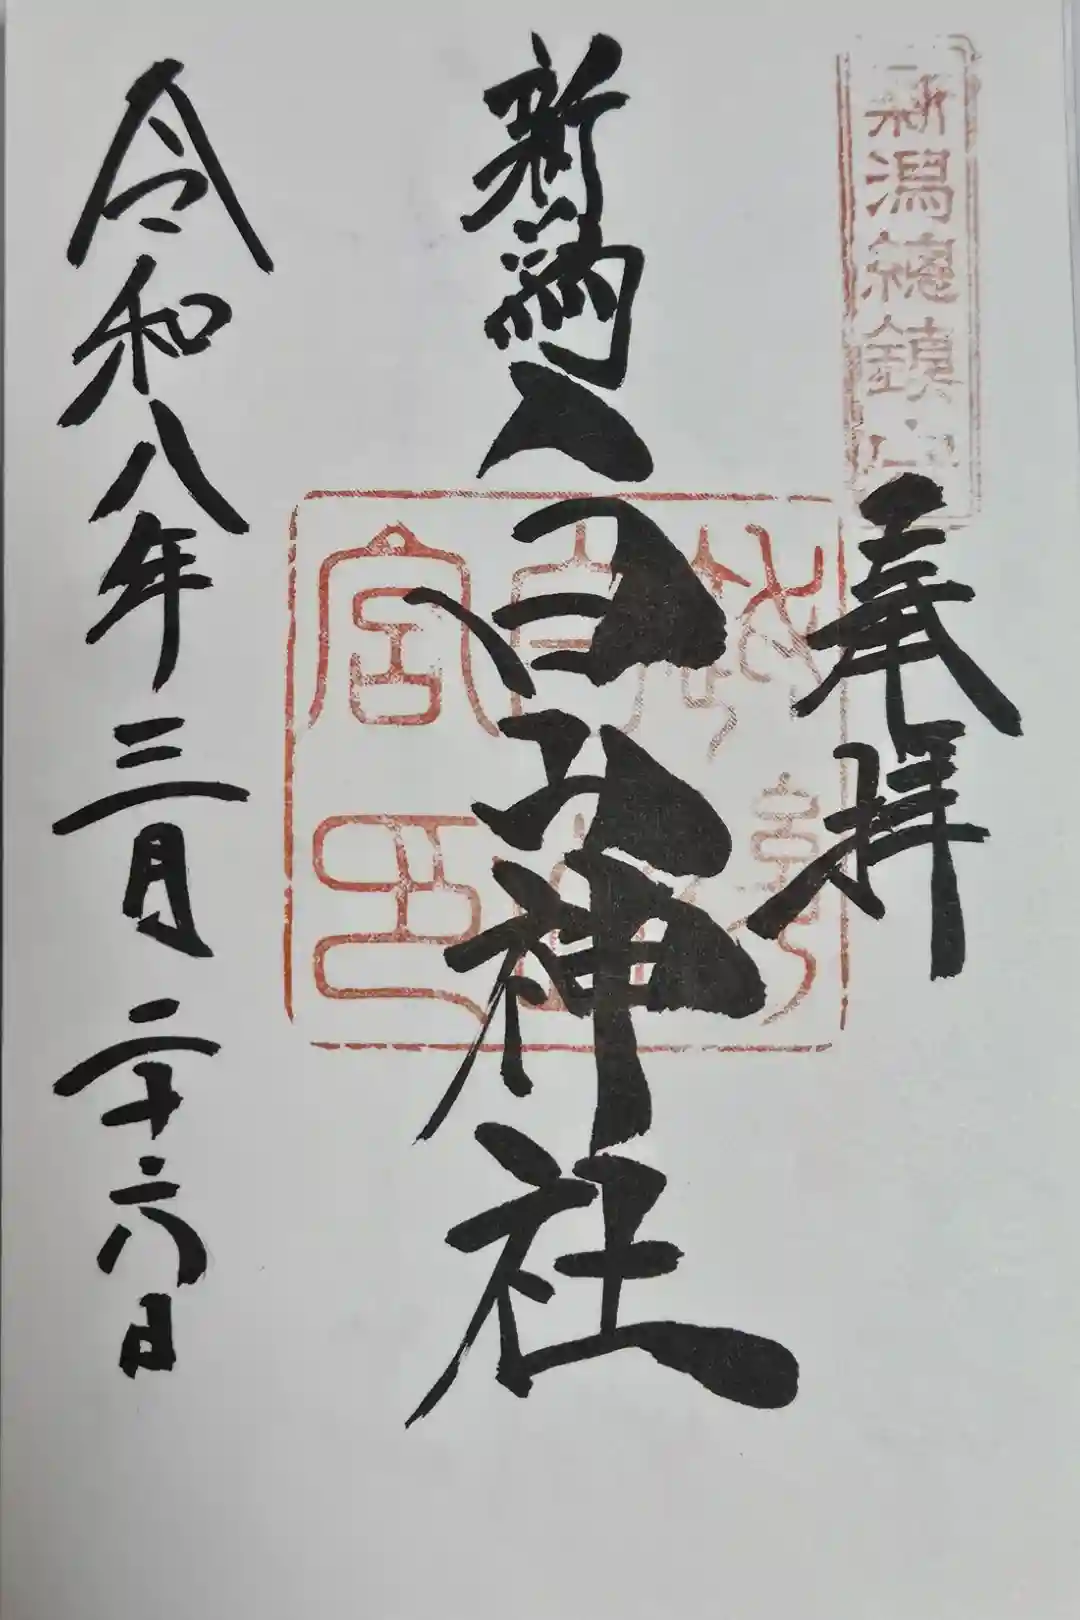 新潟總鎮守
奉拝
新潟白山神社
越後
白山
宮印
令和八年三月二十六日